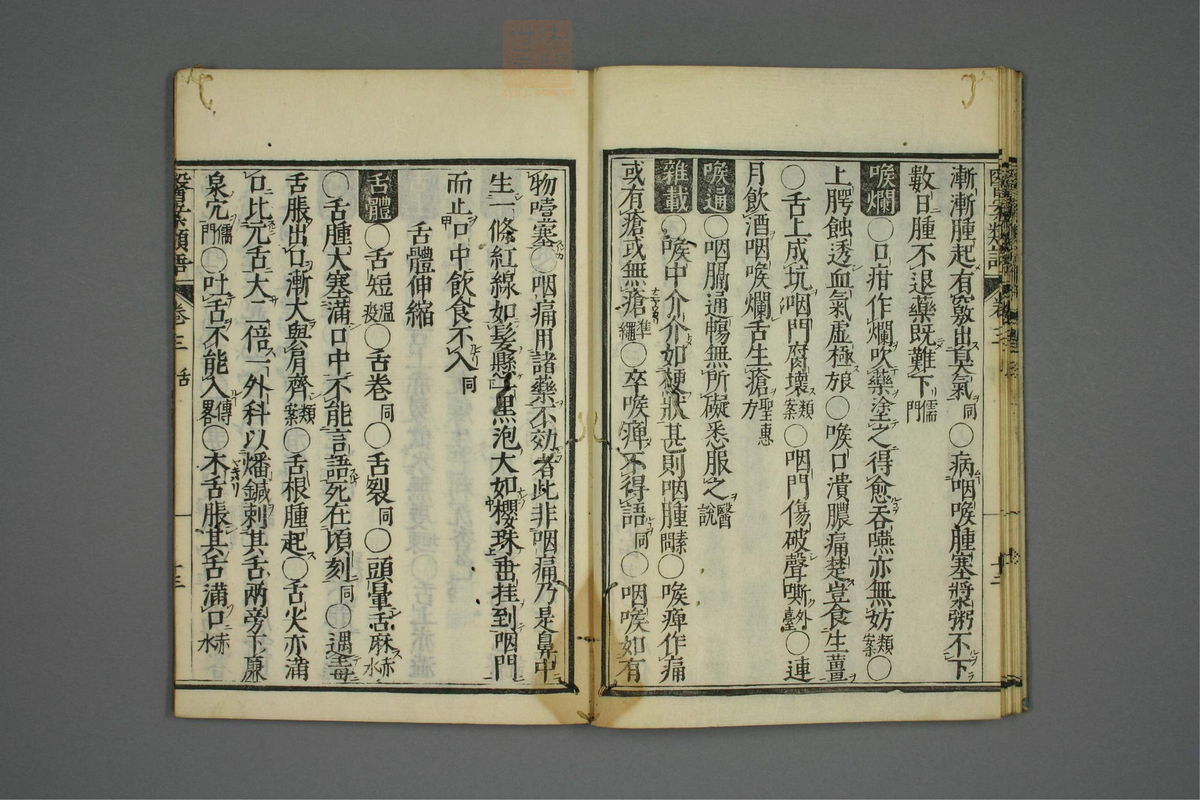 漸漸腫起有竅出臭氣同〇病咽喉腫塞漿粥不下
數日腫不退藥既難下儒門
喉爛〇口疳作爛吹藥塗之得愈吞嚥亦無妨類案〇
上腭蝕透血氣虛極〇喉口潰膿痛楚豈食生薑
〇舌上成坑咽門腐壞類案〇咽門傷破聲嘶外臺〇連
月飲酒咽喉爛舌生瘡聖惠方
喉通〇咽膈通暢無所礙悉服之醫說
雜載〇喉中介介如梗狀甚則咽腫素問〇喉痺作痛
或有瘡或無瘡準繩〇卒喉痺不得語同〇咽喉如有
物噎塞〇咽痛用諸藥不効者此非咽痛乃是鼻中
生一條紅線如髮懸一黑泡大如櫻珠垂挂到咽門
而止口中飲食不入同
舌體伸縮
舌體〇舌短溫疫〇舌卷同〇舌裂同〇頭暈舌麻赤水
〇舌腫大塞滿口中不能言語死在頃刻同〇遇毒
舌脹出口漸大與肩齊類案〇舌根腫起〇舌火亦滿
口比元舌大二倍一外科以燔鍼刺其舌兩旁下廉
泉穴儒門〇吐舌不能入傳畧〇木舌脹其舌滿口赤水
醫案類語 卷三 舌 十三